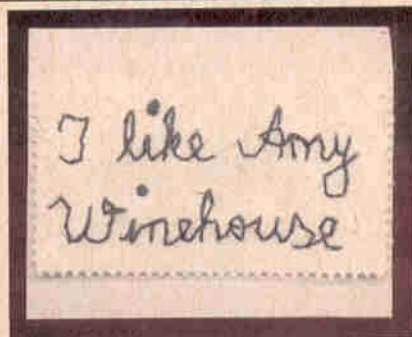 I like Amy
Winehouse